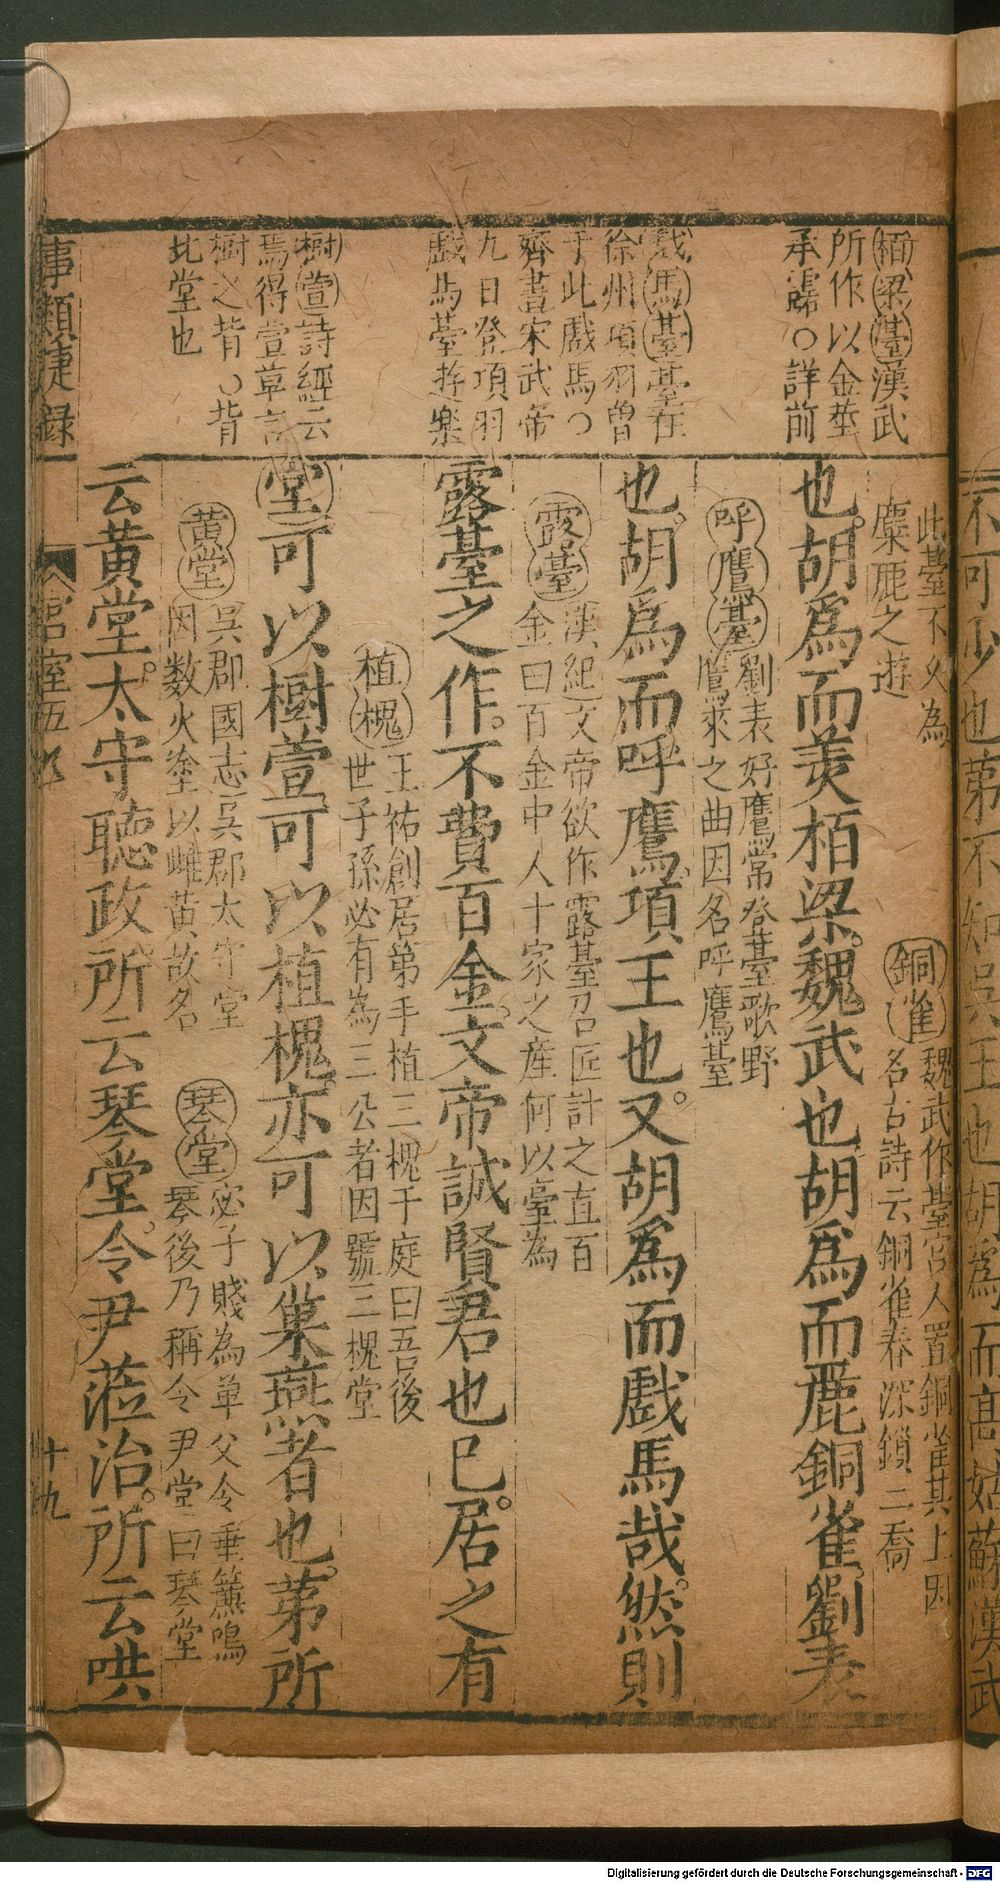 不可少也苐不知吳王也胡為而高姑蘇漢武
栢梁臺漢武
所作以金莖
承露○詳前
此臺不久為
麋鹿之遊
銅雀魏武作臺宮人置銅雀其上因
名古詩云銅雀春深鎖二喬
也胡爲而羙栢梁魏武也胡爲而麗銅雀劉表
呼鷹臺劉表好鷹常登臺歌野
鷹來之曲因名呼鷹臺
戲馬臺臺在
徐州項羽曾
于此戲馬○
齊書宋武帝
九日登項羽
戲馬臺遊樂
也胡爲而呼鷹項王也又胡爲而戲馬哉然則
露臺漢紀文帝欲作露臺召匠計之直百
金曰百金中人十家之產何以臺為
露臺之作不費百金文帝誠賢君也巳居之有
樹萱詩經云
焉得萱草言
樹之背○背
北堂也
植槐王祐創居第手植三槐于庭曰吾後
世子孫必有為三公者因號三槐堂
堂可以樹萱可以植槐亦可以巢燕者也苐所
黃堂吳郡國志吳郡太守堂
因数火塗以雌黃故名
琴堂宓子賤為单父令垂簾鳴
琴後乃稱令尹堂曰琴堂
云黃堂太守聴政所云琴堂令尹蒞治所云哄
事類捷錄
宮室五
十九
Digitalisierung gefördert durch die Deutsche Forschungsgemeinschaft - DFG